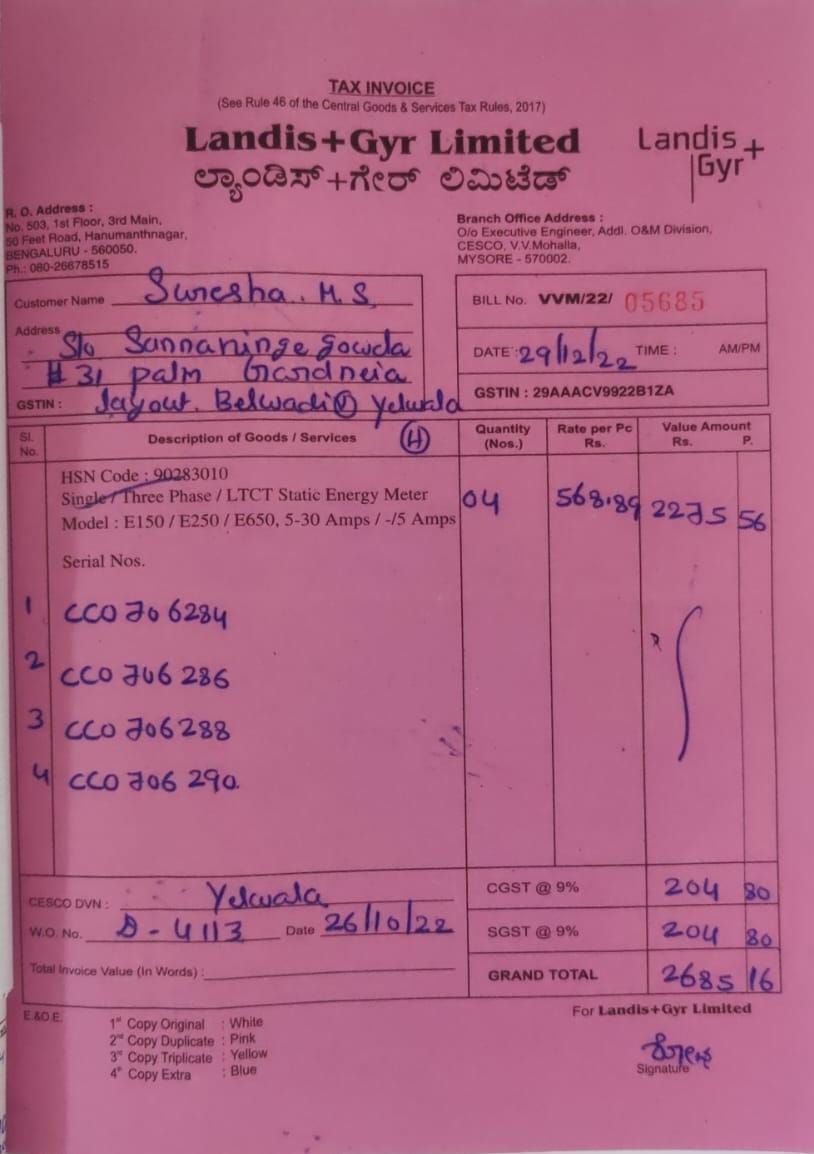 TAX INVOICE
(See Rule 46 of the Central Goods & Services Tax Rules, 2017)
Landis+Gyr Limited
ಲ್ಯಾಂಡಿಸ್+ಗೇರ್ ಲಿಮಿಟೆಡ್
Landis+
Gyr
R. O. Address :
No. 503, 1st Floor, 3rd Main,
50 Feet Road, Hanumanthnagar,
BENGALURU - 560050.
Ph.: 080-26678515
Branch Office Address :
O/o Executive Engineer, Addl. O&M Division,
CESCO, V.V.Mohalla,
MYSORE - 570002.
Customer Name Suresha. M.S.
Address S/o Sannaninge gowda
# 31 palm Gardneia
GSTIN : layout. Belwadi Yelwala
BILL No. VVM/22/ 05685
DATE : 29/12/22 TIME : AM/PM
GSTIN : 29AAACV9922B1ZA
Sl. No. Description of Goods / Services H Quantity (Nos.) Rate per Pc Rs. Value Amount Rs. P.
HSN Code : 90283010
Single / Three Phase / LTCT Static Energy Meter 04 568.89 2275 56
Model : E150 / E250 / E650, 5-30 Amps / -/5 Amps
Serial Nos.
1 CC0706284
2 CC0706286
3 CC0706288
4 CC0706290.
CESCO DVN : Yelwala CGST @ 9% 204 80
W.O. No. D - 4113 Date 26/10/22 SGST @ 9% 204 80
Total Invoice Value (In Words) : GRAND TOTAL 2685 16
E.&O.E.
For Landis+Gyr Limited
1st Copy Original : White
2nd Copy Duplicate : Pink
3rd Copy Triplicate : Yellow
4th Copy Extra : Blue
Signature